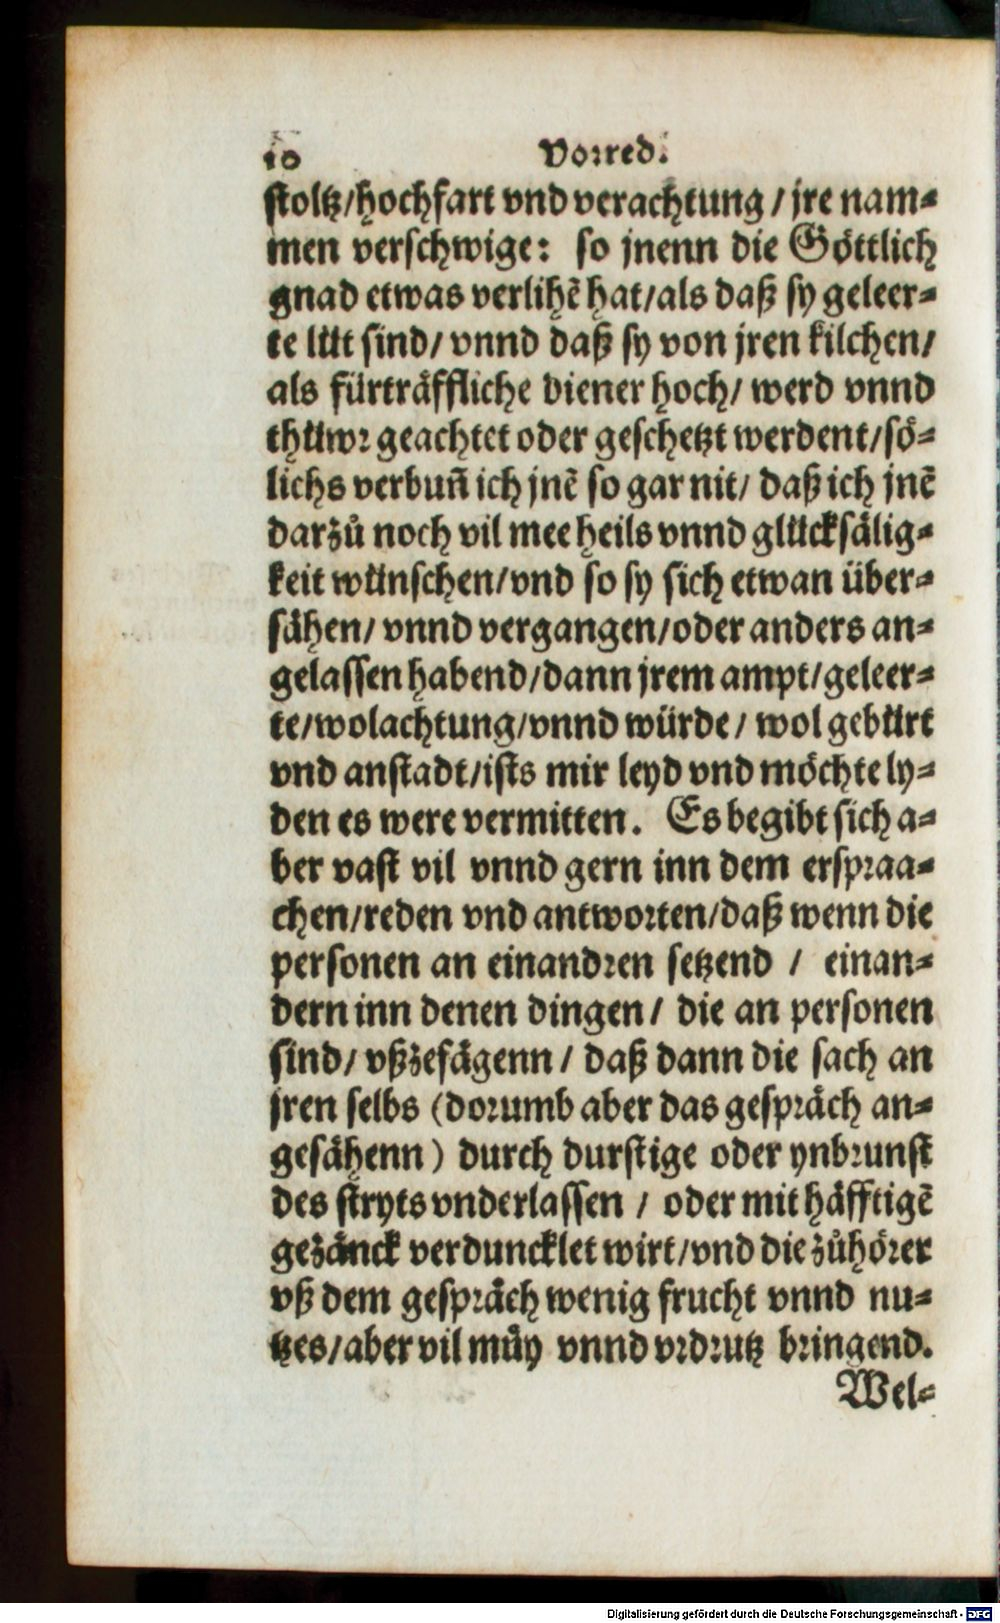 10 Vorred.
stoltz/hochfart vnd verachtung / jre nam-
men verschwige: so jnenn die Göttlich
gnad etwas verlihẽ hat/als daß sy geleer-
te lüt sind/ vnnd daß sy von jren kilchen/
als fürträffliche diener hoch/ werd vnnd
thüwr geachtet oder geschetzt werdent/sö-
lichs verbuñ ich jnẽ so gar nit/ daß ich jnẽ
darzů noch vil mee heils vnnd glücksälig-
keit wünschen/vnd so sy sich etwan über-
sähen/ vnnd vergangen/oder anders an-
gelassen habend/dann jrem ampt/geleer-
te/wolachtung/vnnd würde/ wol gebürt
vnd anstadt/ists mir leyd vnd möchte ly-
den es were vermitten. Es begibt sich a-
ber vast vil vnnd gern inn dem erspraa-
chen/reden vnd antworten/daß wenn die
personen an einandren setzend / einan-
dern inn denen dingen/ die an personen
sind/ vßzefägenn / daß dann die sach an
jren selbs (dorumb aber das gespräch an-
gesähenn) durch durstige oder ynbrunst
des stryts vnderlassen / oder mit häfftigẽ
gezänck verduncklet wirt/vnd die zůhörer
vß dem gespräch wenig frucht vnnd nu-
tzes/aber vil můy vnnd vrdrutz bringend.
Wel-
Digitalisierung gefördert durch die Deutsche Forschungsgemeinschaft - DFG